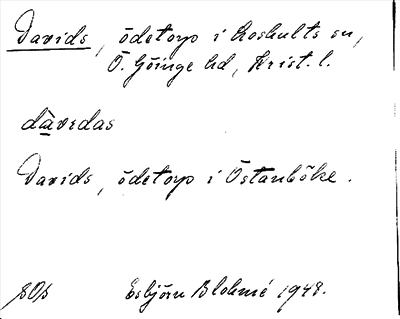 Davids, ödetorp i Loshults sn,
Ö. Göinge hd, Krist. l.
dàvedas
Davids, ödetorp i Östanböke.
Esbjörn Blohmé 1948.